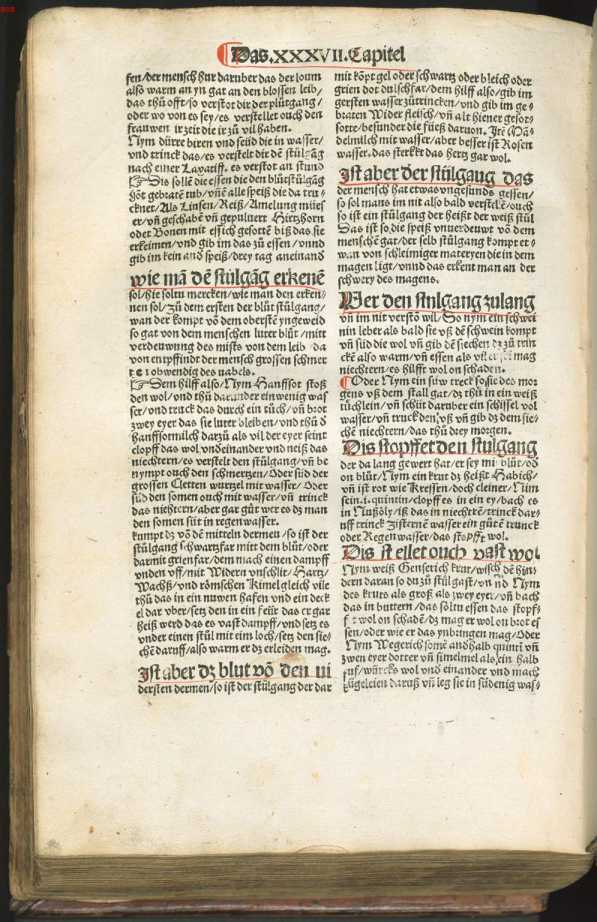 Das.XXXVII.Capitel
fen/der mensch hur darüber das der loum
also warm an yn gat an den blossen leib/
das thů offt/so verstot dir der plůtgang/
oder wo von es sey/es verstellet ouch den
frauwen ir zeit die ir zů vil haben.
Nym dürre biren vnd seüd die in wasser/
vnd trinck das/es verstelt dir dē stůlgāg
nach einer Laxatiff. es verstot an stund
Dis sollē die essen die den blůtstůlgāg
Hōt gebratē tub/vn̄ē alle speiß die da tru
cknet/Als Linsen/Reiß/Amelung můes
er/vn̄ geschabē vn̄ gepuluert Hirtzhorn
oder Bonen mit essich gesottē biß das sie
erkeimen/vnd gib im das zů essen/vnnd
gib im kein and̄ speiß/drey tag aneinand
wie mā dē stůlgāg erkenē
sol/hie soltu mercken/wie man den erken
nen sol/zů dem ersten der blůt stůlgang/
wan der kompt vō dem oberstē yngeweid
so gat von dem menschen luter blůt/mitt
verdeuwung des mists von dem leib da
von empfindt der mensch grossen schmer
tzē obwendig des nabels.
Dem hilff also/Nym Hanffsot stoß
den wol/vnd thů darunder ein wenig was
ser/vnd truck das durch ein tůch/vn̄ brot
zwey eyer das sie luter bleiben/vnd thů d̄
hanffsotmilch darzů als vil der eyer seint
clopff das wol vndeinander vnd neiß das
niechtern/es verstelt den stůlgang/vn̄ be
nympt ouch den schmertzen/Oder süd der
grossen Cletten wurtzel mit wasser/Oder
süd den somen ouch mit wasser/vn̄ trinck
das niechtern/aber gar gůt wer es dz man
den somen süt in regenwasser.
kumpt dz vō dē mitteln dermen/so ist der
stůlgang schwartzfar mit dem blůt/oder
darmit grienfar/dem mach einen dampff
vnden vff/mit Widern vnschlit/Hartz/
Wachß/vnd römschen Kimel gleich vile
thů das in ein nuwen hafen vnd ein deck
el dar vber/setz den in ein feür das er gar
heiß werd das es vast dampff/vnd setz es
vnder einen stůl mit eim loch/setz den sie=
chē daruff/also warm er dz erleiden mag.
Ist aber dz blut vō den vi
dersten dermen/so ist der stůlgang der dar
mit köpt gel oder schwartz oder bleich oder
grien dot dulschfar/dem hilff also/gib im
gersten wasser zů trincken/vnd gib im ge=
braten Wider fleisch/vn̄ alt hiener gesot=
sotte/besunder die füeß daruon. Ire Mā=
delmilch mit wasser/aber besser ist Rosen
wasser. das sterckt das hertz gar wol.
Ist aber der stůlgang das
der mensch hat etwas vngesunds gessen/
so sol mans im nit also bald verstelē/ouch
so ist ein stůlgang der heißt der weiß stůl
Das ist so die speiß vnuerdeuwt vō dem
menschē gat/der selb stůlgang kompt et=
wan von schleimiger materyen die in dem
magen ligt/vnnd das erkent man an der
schwery des magens.
Wer den stulgang zulang
vn̄ im nit verstō wil/So nym ein schwei
nin leber als bald sie vß dē schwein kompt
vn̄ süd die wol vn̄ gib dē siechen dz zů trin
ckē also warm/vn̄ essen als vil er mag
niechtern/es hilfft wol on schaden.
Oder Nym ein süw treck so sie des mor
gens vß dem stall gat/dz thů in ein weiß
tüchlein/vn̄ schüt daruber ein schissel vol
wasser/vn̄ truck den vß vn̄ gib dz dem sie=
chē niechtern/das thů drey morgen.
Dis stopffet den stulgang
der da lang gewert hat/er sey mit blůt/od̄
on blůt/Nym ein krut dz heißt Habich/
vn̄ ist rot wie Kressen/doch cleiner/Nim
sein.i.quintin/clopff es in ein ey/bach es
in Nußöly/iß das in niechtē/trinck dar=
uff trinck Zisternē wasser ein gůtē trunck
oder Regenwasser/das stopfft wol.
Dis ist ellet ouch vast wol
Nym weiß Genserich krut/wisch dē hin
dern daran so du zů stůl gast/vn̄ nō Nym
des kruts als groß als zwey eyer/vn̄ bach
das in buttern/das soltu essen das stopf=
ft wol on schadē/dz mag er wol on brot es
sen/oder wie er das ynbringen mag/Oder
Nym Wegerich somē andhalb quinti vn̄
zwen eyer dotter vn̄ simelmel als ein halb
nuß/würcks wol vnd einander vnd mach
kügelein daruß vn̄ leg sie in südenig was=